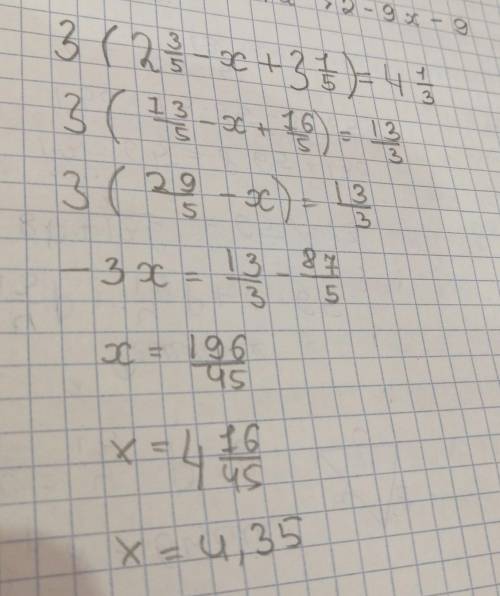 x2-9x-9
3(2 3/5 - x + 3 1/5) = 4 1/3
3(13/5 - x + 16/5) = 13/3
3(29/5 - x) = 13/3
-3x = 13/3 - 87/5
x = 196/45
x = 4 16/45
x = 4,35